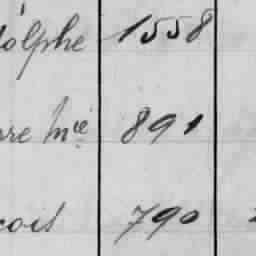 olphe 1558
rre Mie 891
cois 790